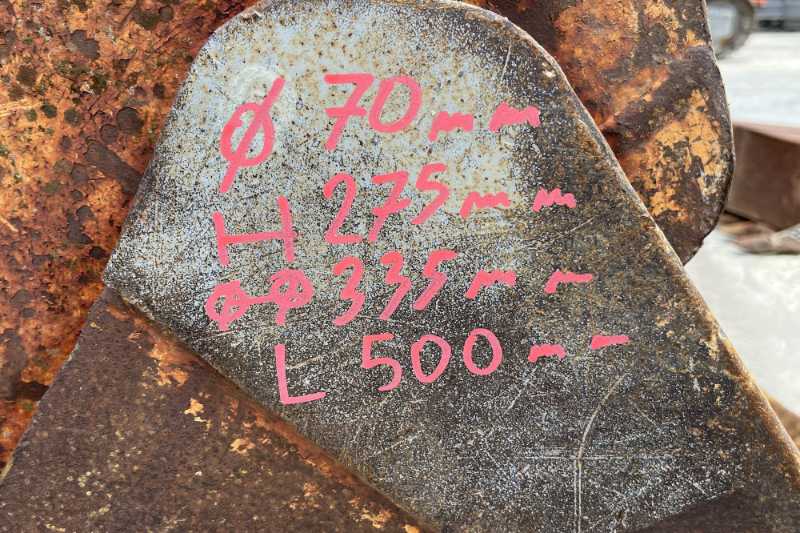 Ø 70 mm
H 275 mm
Ø-Ø 335 mm
L 500 mm